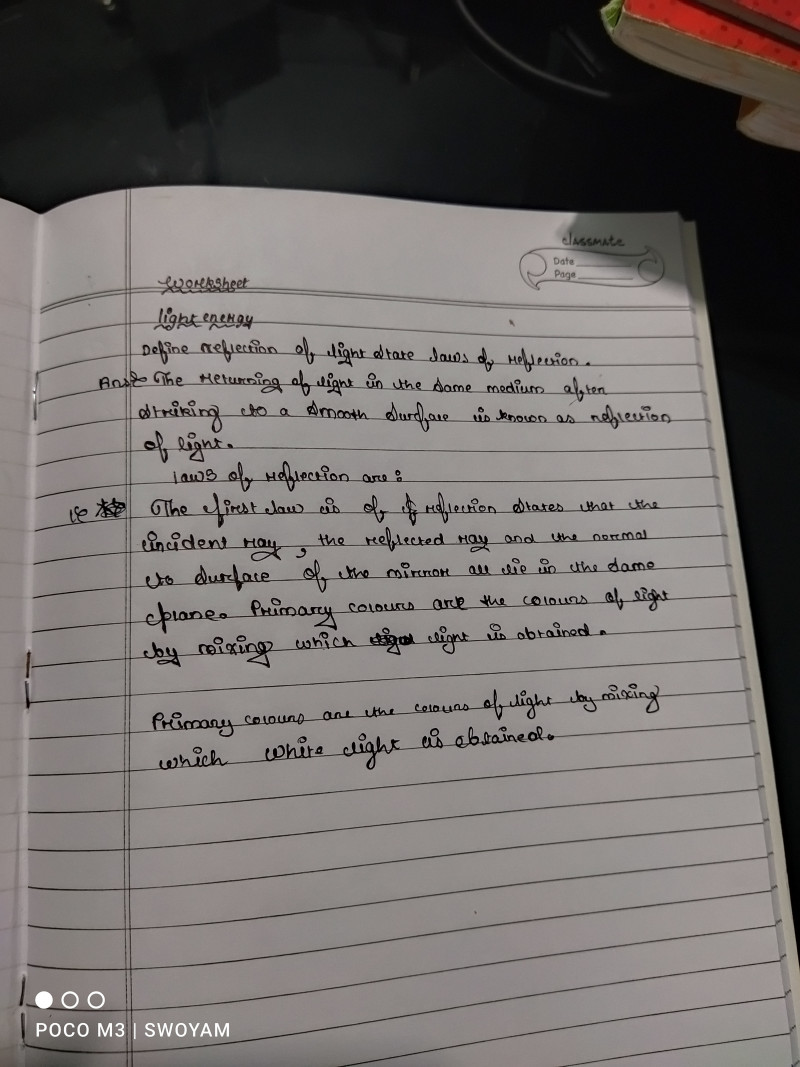 classmate
Date
Page
Worksheet
light energy
Define reflection of light state laws of reflection.
Ans:- The returning of light in the same medium after
striking to a smooth surface is known as reflection
of light.
laws of reflection are:
The first law is of reflection states that the
incident ray, the reflected ray and the normal
to surface of the mirror all lie in the same
plane. Primary colours are the colours of light
by mixing which light is obtained.
Primary colours are the colours of light by mixing
which white light is obtained.
POCO M3 | SWOYAM